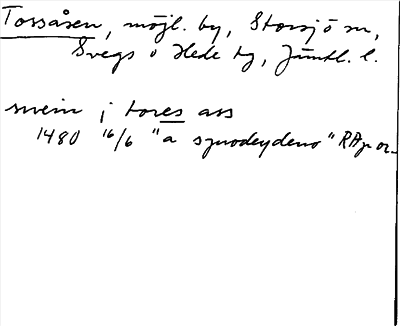 Tossåsen, möjl. by, Storsjö sn,
Svegs o Hede tg, Jämtl. l.
swein j tores ass
1480 16/6 "a synodeydeno" RAp or.